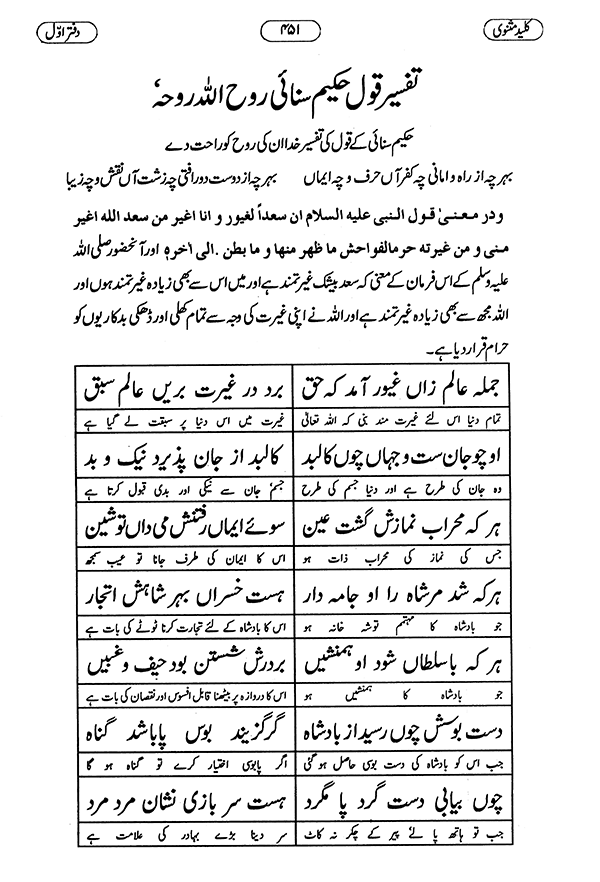 کلید مثنوی ۴۵۱ دفتر اوّل
تفسیر قول حکیم سنائی روح اللہ روحہ،
حکیم سنائی کے قول کی تفسیر خدا ان کی روح کو راحت دے
بہرچہ از راہ و امانی چہ کفر آں حرف و چہ ایماں بہرچہ از دوست دور افتی چہ زشت آں نقش و چہ زیبا
و در معنیٰ قول النبی علیہ السلام ان سعداً لغیور و انا اغیر من سعد اللہ اغیر
منی و من غیرتہ حرم الفواحش ما ظہر منہا و ما بطن . الی اٰخرہ اور آنحضور صلی اللہ
علیہ وسلم کے اس فرمان کے معنی کہ سعد بیشک غیرتمند ہے اور میں اس سے بھی زیادہ غیرتمند ہوں اور
اللہ مجھ سے بھی زیادہ غیرتمند ہے اور اللہ نے اپنی غیرت کی وجہ سے تمام کھلی اور ڈھکی بدکاریوں کو
حرام قرار دیا ہے۔
جملہ عالم زاں غیور آمد کہ حق برد در غیرت بریں عالم سبق
تمام دنیا اس لئے غیرت مند بنی کہ اللہ تعالیٰ غیرت میں اس دنیا پر سبقت لے گیا ہے
او چو جان ست و جہاں چوں کالبد کالبد از جان پذیرد نیک و بد
وہ جان کی طرح ہے اور دنیا جسم کی طرح جسم جان سے نیکی اور بدی قبول کرتا ہے
ہر کہ محراب نمازش گشت عین سوئے ایماں رفتنش می داں تو شین
جس کی نماز کی محراب ذات ہو اس کا ایمان کی طرف جانا تو عیب سمجھ
ہرکہ شد مرشاہ را او جامہ دار ہست خسراں بہر شاہش اتجار
جو بادشاہ کا مہتمم توشہ خانہ ہو اس کا بادشاہ کے لئے تجارت کرنا ٹوٹے کی بات ہے
ہر کہ باسلطاں شود او ہمنشیں بردرش شستن بود حیف و غبیں
جو بادشاہ کا ہمنشیں ہو اس کا دروازہ پر بیٹھنا قابل افسوس اور نقصان کی بات ہے
دست بوسش چوں رسید از بادشاہ گر گزیند بوس پا باشد گناہ
جب اس کو بادشاہ کی دست بوسی حاصل ہو گئی اگر پابوسی اختیار کرے تو گناہ ہو گا
چوں بیابی دست گرد پا مگرد ہست سر بازی نشان مرد مرد
جب تو ہاتھ پا لے پیر کے چکر نہ کاٹ سر دینا بڑے بہادر کی علامت ہے